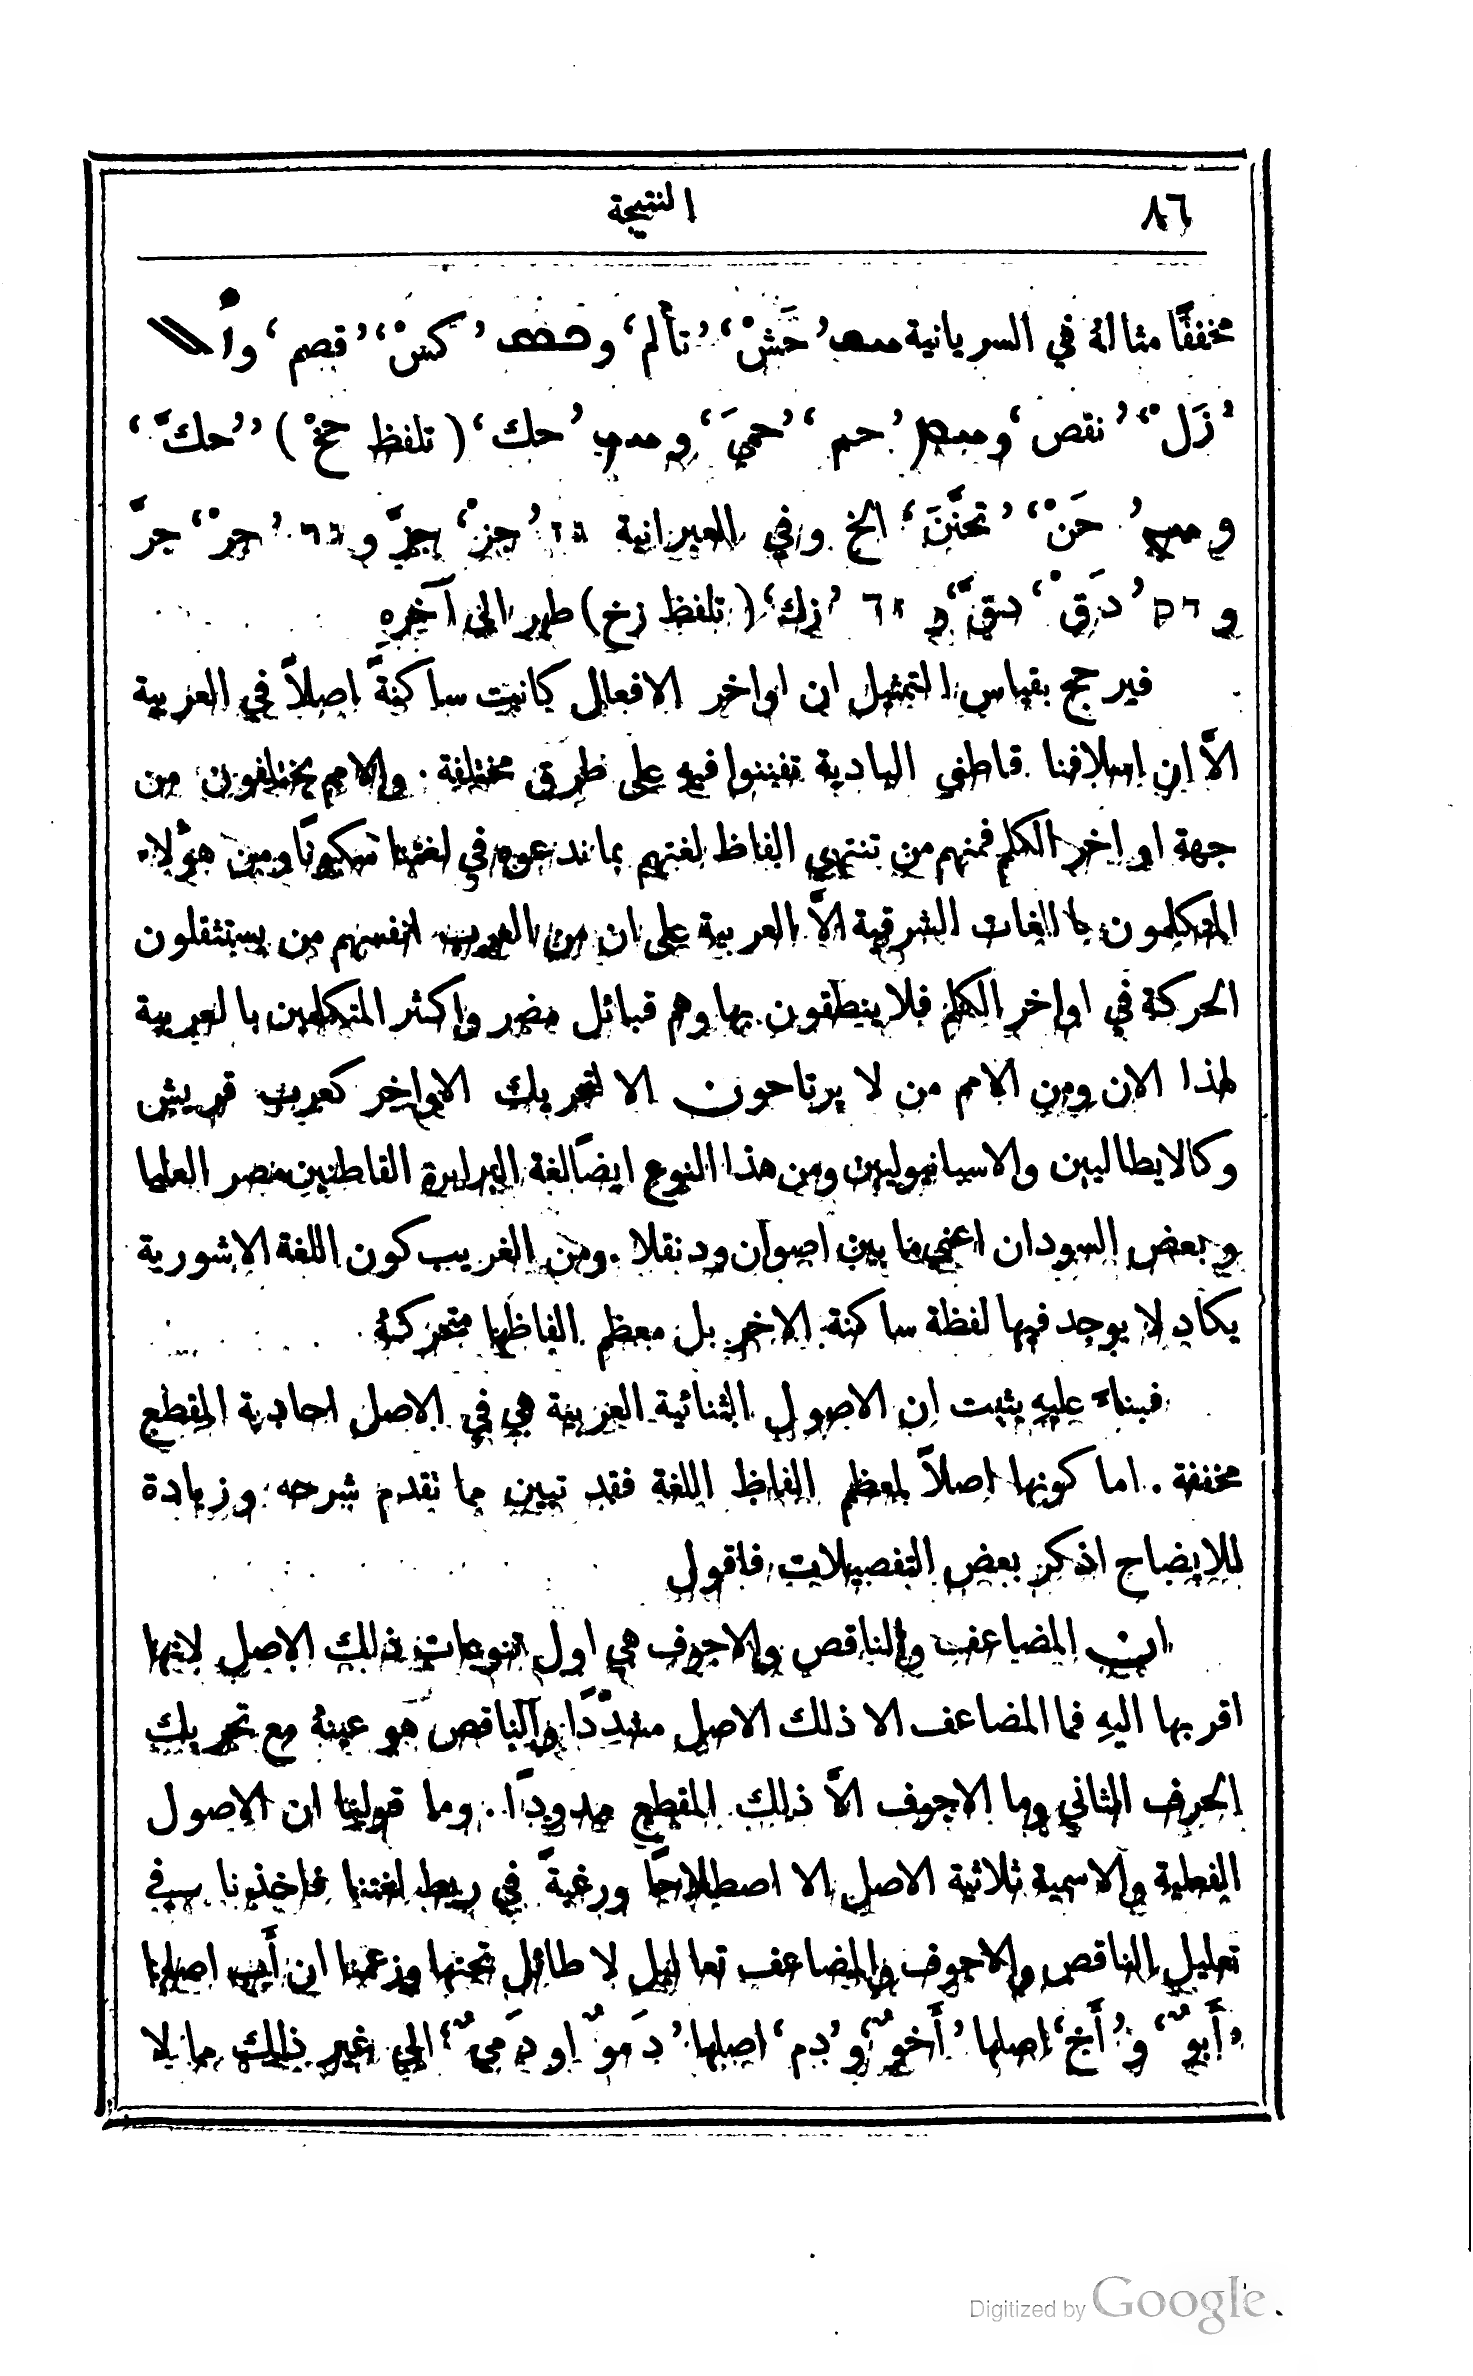 ٨٦ النتيجة
مخففًا مثالهُ في السريانية ܚܫ ’حَشْ‘ ’تألم‘ و ’كسْ‘ ’قصم‘ و
’زَل‘ْ ’نقص‘ و ’حم‘ ’حميَ‘ و ’حك‘ (تلفظ حخْ) ’حكَّ‘
و ’حَنْ‘ ’تحنَّنَ‘ الخ وفي العبرانية גז ’جزْ‘ جزَّ و גר ’جرْ‘ جرَّ
و דק ’دَقْ‘ دقَّ و זך ’زك‘ (تلفظ زخ) طهر الى آخرهِ
فيرجح بقياس التمثيل ان اواخر الافعال كانت ساكنةً اصلاً في العربية
الاَّ ان اسلافنا قاطني البادية تفننوا فيهِ على طرق مختلفة . والامم يختلفون من
جهة اواخر الكلم فمنهم من تنتهي الفاظ لغتهم بما ندعوه في لغتنا سكونًا ومن هؤلاء
المتكلمون باللغات الشرقية الاَّ العربية على ان من العرب انفسهم من يستثقلون
الحركة في اواخر الكلم فلا ينطقون بها وهم قبائل مضر واكثر المتكلمين بالعربية
لهذا الان ومن الامم من لا يرتاحون الا لتحريك الاواخر كعرب قريش
وكالايطاليين والاسبانيوليين ومن هذا النوع ايضًا لغة البرابرة القاطنين مصر العليا
وبعض السودان اعني ما بين اصوان ودنقلا . ومن الغريب كون اللغة الاشورية
يكاد لا يوجد فيها لفظة ساكنة الاخر بل معظم الفاظها متحركة
فبناءً عليهِ يثبت ان الاصول الثنائية العربية هي في الاصل احادية المقطع
مخففة . اما كونها اصلاً لمعظم الفاظ اللغة فقد تبين مما تقدم شرحه وزيادة
للايضاح اذكر بعض التفصيلات فاقول
ان المضاعف والناقص والاجوف هي اول تنوعات ذلك الاصل لانها
اقربها اليهِ فما المضاعف الا ذلك الاصل مشدَّدًا والناقص هو عينهُ مع تحريك
الحرف الثاني وما الاجوف الاَّ ذلك المقطع ممدودًا . وما قولنا ان الاصول
الفعلية والاسمية ثلاثية الاصل الا اصطلاحًا ورغبةً في ربط لغتنا فاخذنا في
تعليل الناقص والاجوف والمضاعف تعاليل لا طائل تحتها وزعمنا ان أَب اصلها
’أَبوٌ‘ و ’أَخ‘ اصلها ’أَخوٌ‘ و ’دم‘ اصلها ’دَموٌ او دَميٌ‘ الى غير ذلك مما لا
Digitized by Google